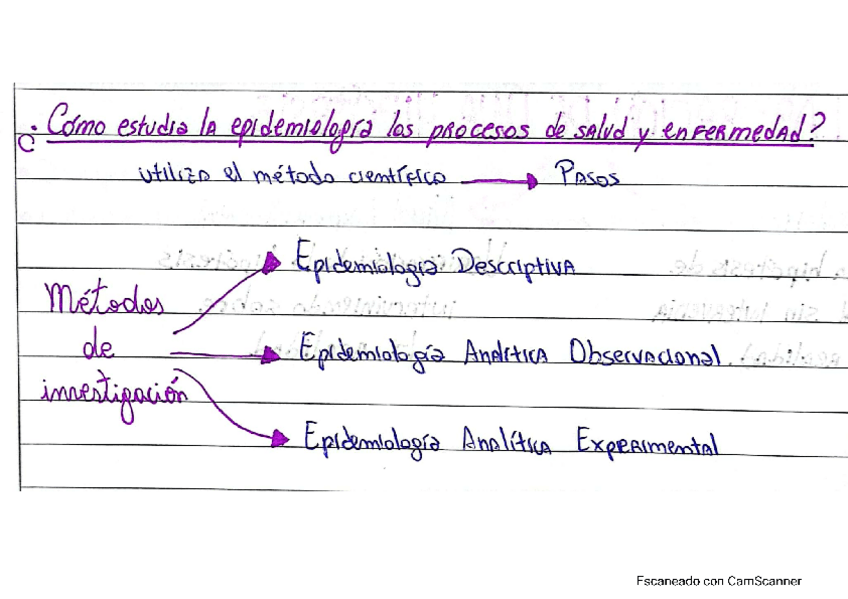 ¿Cómo estudia la epidemiología los procesos de salud y enfermedad?
utiliza el método científico → Pasos
Epidemiología Descriptiva
Métodos
de
investigación
Epidemiología Analítica Observacional
Epidemiología Analítica Experimental
Escaneado con CamScanner